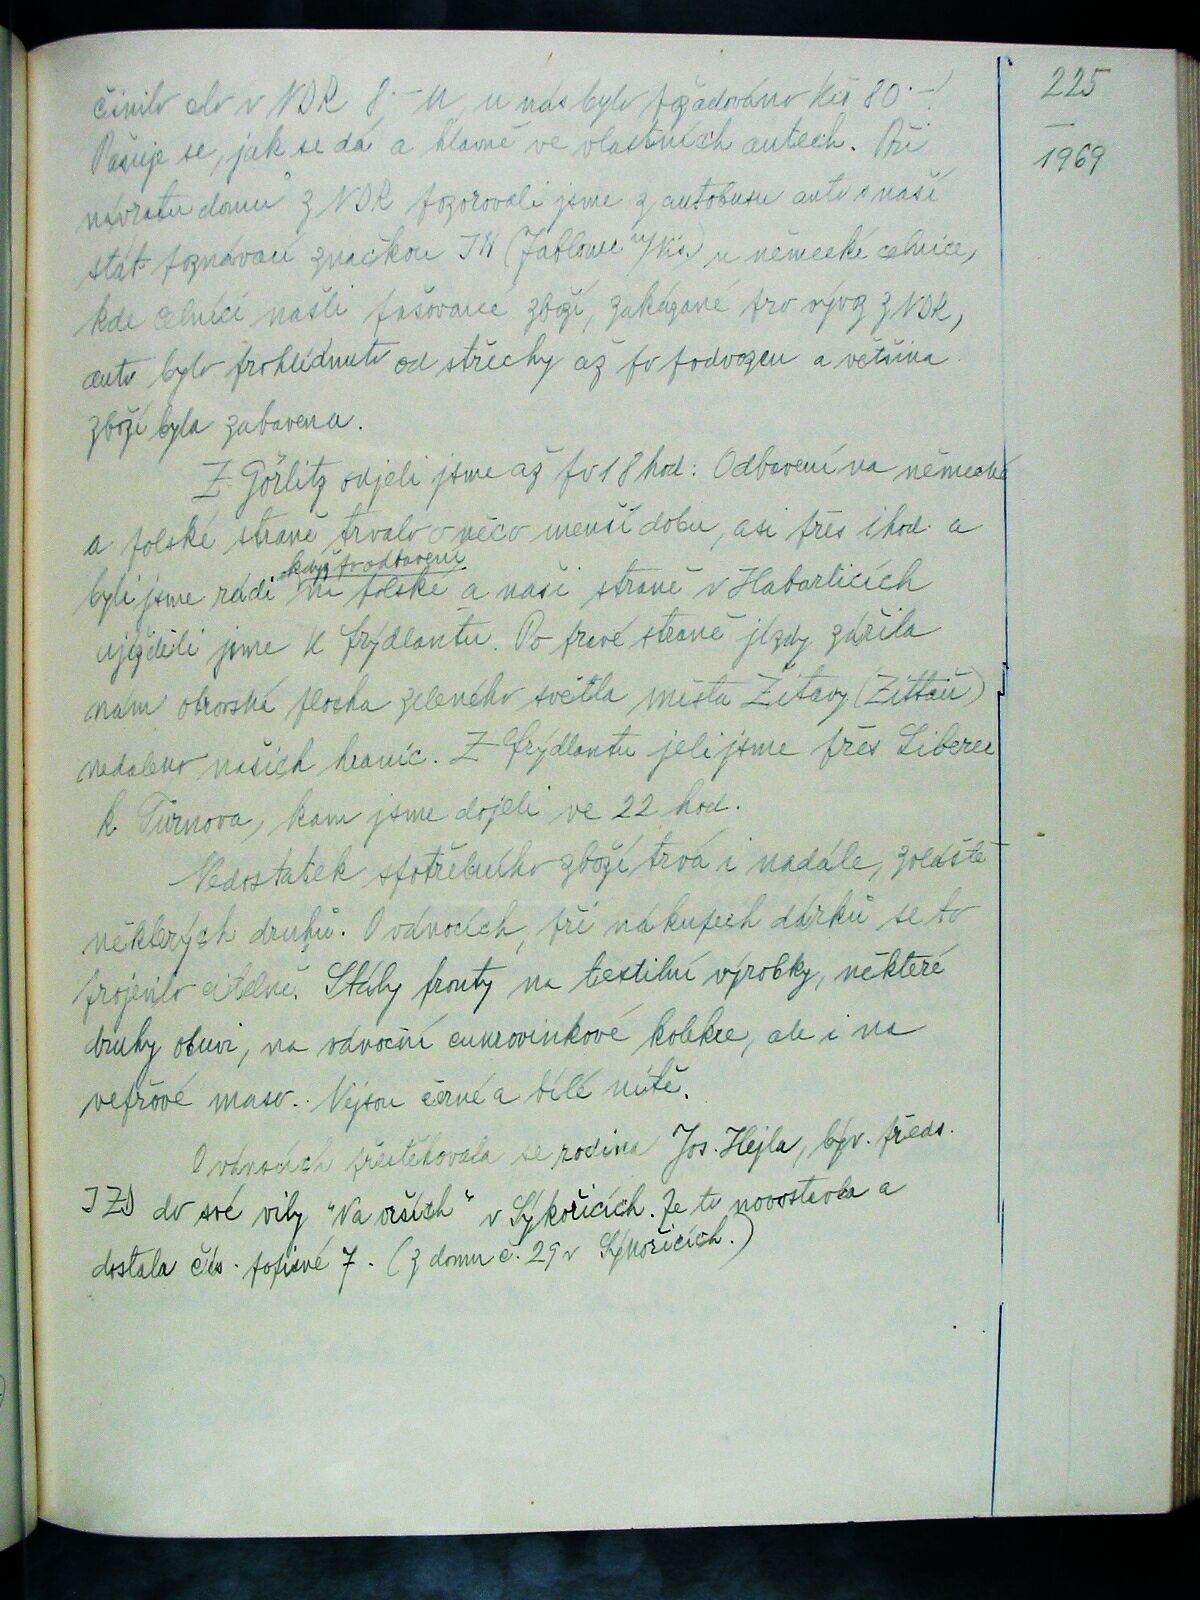 225
1969
činilo clo v NDR 8.- M, u nás bylo požadováno Kčs 80.-!
Pašuje se, jak se dá a hlavně ve vlastních autech. Při
návratu domů z NDR pozorovali jsme z autobusu auto s naší
stát. poznávací značkou JN (Jablonec n/Nis.) u německé celnice,
kde celníci našli pašované zboží, zakázané pro vývoz z NDR,
auto bylo prohlédnuto od střechy až po podvozek a většina
zboží byla zabavena.
Z Görlitz odjeli jsme až po 18 hod. Odbavení na německé
a polské straně trvalo o něco menší dobu, asi přes 1 hod. a
když po odbavení
byli jsme rádi na polské a naší straně v Habarticích
ujížděli jsme k Frýdlantu. Po pravé straně jízdy zářila
nám obrovská plocha zeleného světla města Žitavy (Zittau)
nedaleko našich hranic. Z Frýdlantu jeli jsme přes Liberec
k Turnova, kam jsme dojeli ve 22 hod.
Nedostatek spotřebního zboží trvá i nadále, zvláště
některých druhů. O vánocích, při nákupech dárků se to
projevilo citelně. Stály fronty na textilní výrobky, některé
druhy obuvi, na vánoční cukrovinkové kolekce, ale i na
vepřové maso. Nejsou černé a bílé nitě.
O vánocích přestěhovala se rodina Jos. Hejla, býv. předs.
JZD do své vily "Na vrších" v Sýkořicích. Je to novostavba a
dostala čís. popisné 7. (z domu č. 29 v Sýkořicích.)